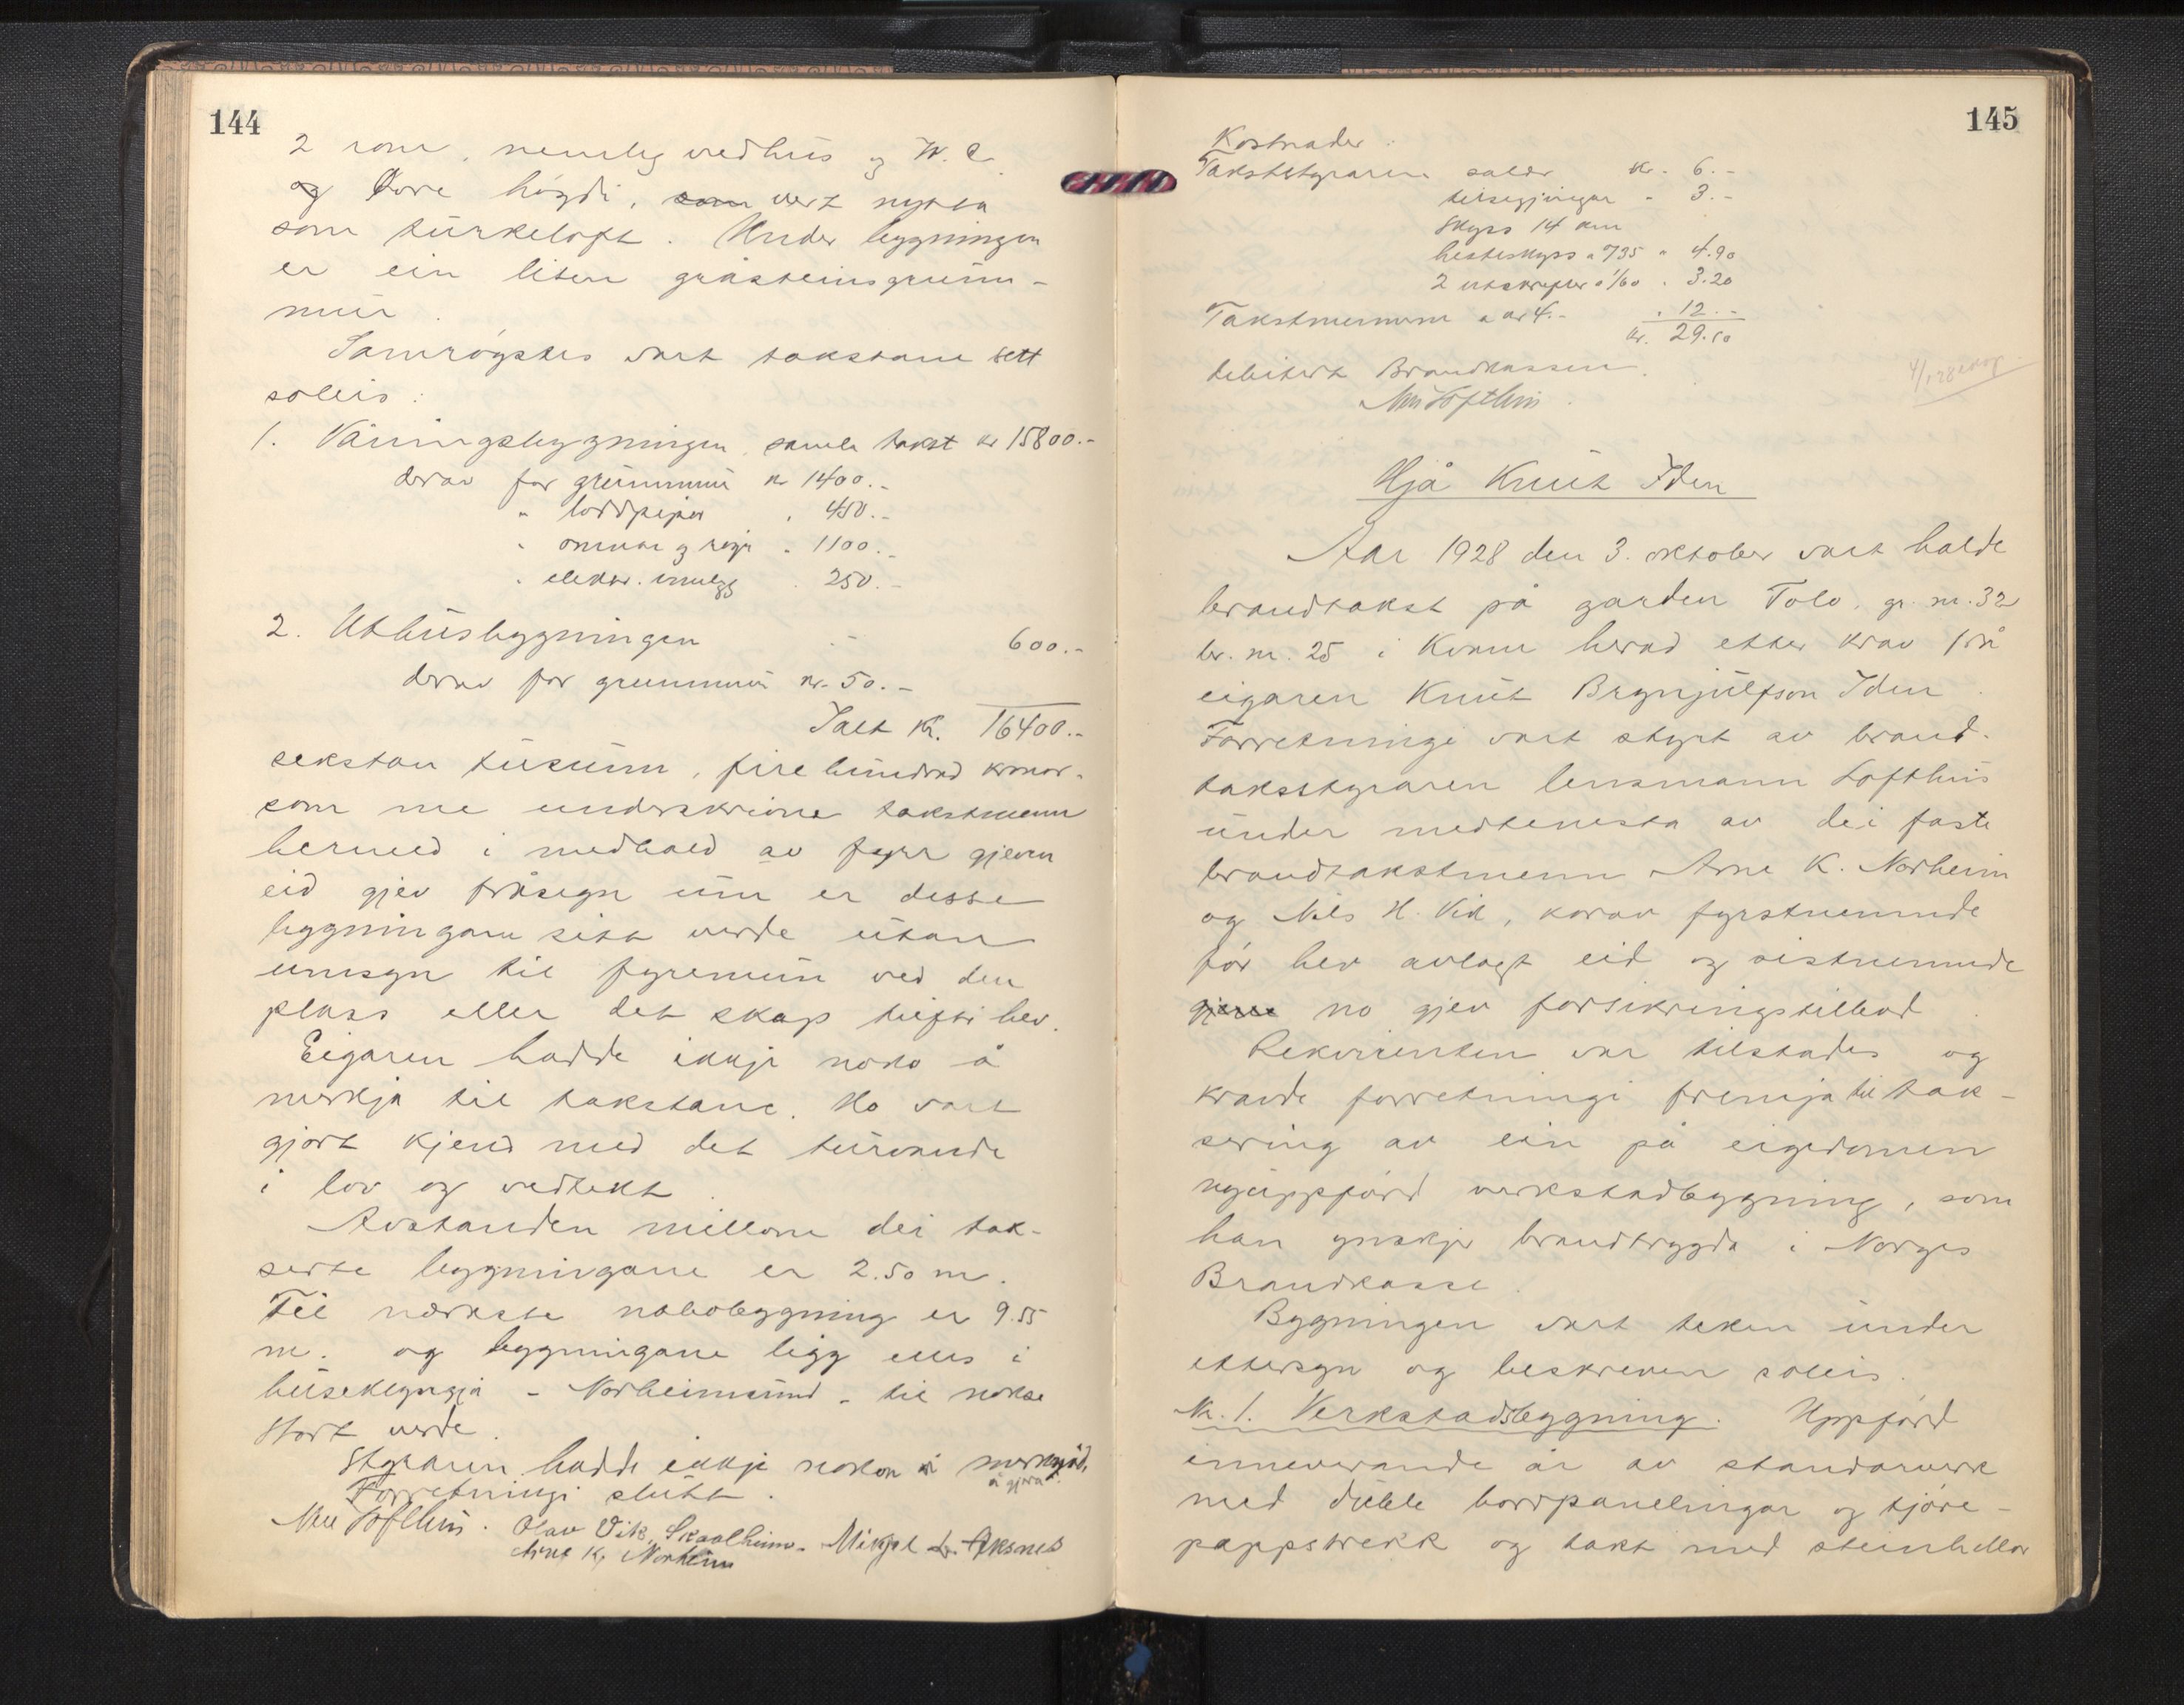 144
2 rom, nemleg vedhus og W.C.
og Övre högdi, som vert nytta
som turkeloft. Under bygningen
er ein liten gråsteinsgrunn-
mur.
Samröystes vart takstane sett
soleis:
1. Våningsbygningen, samla takst kr 15800.-
derav for grunnmur kr 1400.-
" loddpipor " 450.-
" omnar og røyr " 1100.-
" elektr. innlegg " 250.-
2. Uthusbygningen 600.-
derav for grunnmur kr. 50.-
Ialt Kr. 16400.-
sekstan tusunn, fire hundrad kronor.
som me underskrivne takstmenn
hermed i medhald av fyrr gjeven
eid gjev fråsegn um er desse
bygningane sitt verde utan
umsyn til fyremun ved den
plass eller det skap tufti hev.
Eigaren hadde ikkje noko å
merkja til takstane. Ho vart
gjort kjend med det turvande
i lov og vedtekt.
Avstanden millom dei tak-
serte bygningane er 2.50 m.
Til nærkste nabobygning er 9.55
m. og bygningane ligg elles i
huseklyngja - Norheimsund - til nokso
stort verde.
Styraren hadde ikkje nokon merknad
å gjera.
Forretningi slutt.
Lofthus. Olav Vik, Skaalheim. Mikjel L. Aksnes
Arne K. Norheim
145
Kostnader:
Takststyraren salær kr. 6.-
tilsegjingar " 3.-
skyss 14 km
hesteskyss a 0/35 " 4.90
2 utskrifter a 1/60 " 3.20
Takstmennene a kr 4.- " 12.-
kr. 29.10
debitert Brandkassen.
Lofthus.
Hjå Knut Iden
Aar 1928 den 3. oktober vart halde
brandtakst på garden Tolo, gr. nr. 32
br. nr. 25 i Kvam herad etter krav frå
eigaren Knut Brynjulfson Iden.
Forretningi vart styrt av brand-
takststyraren lensmann Lofthus
under medtenesta av dei faste
brandtakstmenn Arne K. Norheim
og Nils H. Vik, korav fyrstnemnde
för hev avlagt eid og sistnemnde
gjeve no gjev forsikringstilbod.
Rekvirenten var tilstades og
kravde forretningi fremja til tak-
sering av ein på eigedomen
nyuppförd verkstadbygning, som
han ynskjer brandtrygda i Norges
Brandkasse.
Bygningen vart teken under
ettersyn og beskreven soleis.
Nr. 1. Verkstadsbygning. Uppförd
inneverande år av standarverk
med duble bordpanelingar og tjöre-
pappstrekk og takt med steinhellor